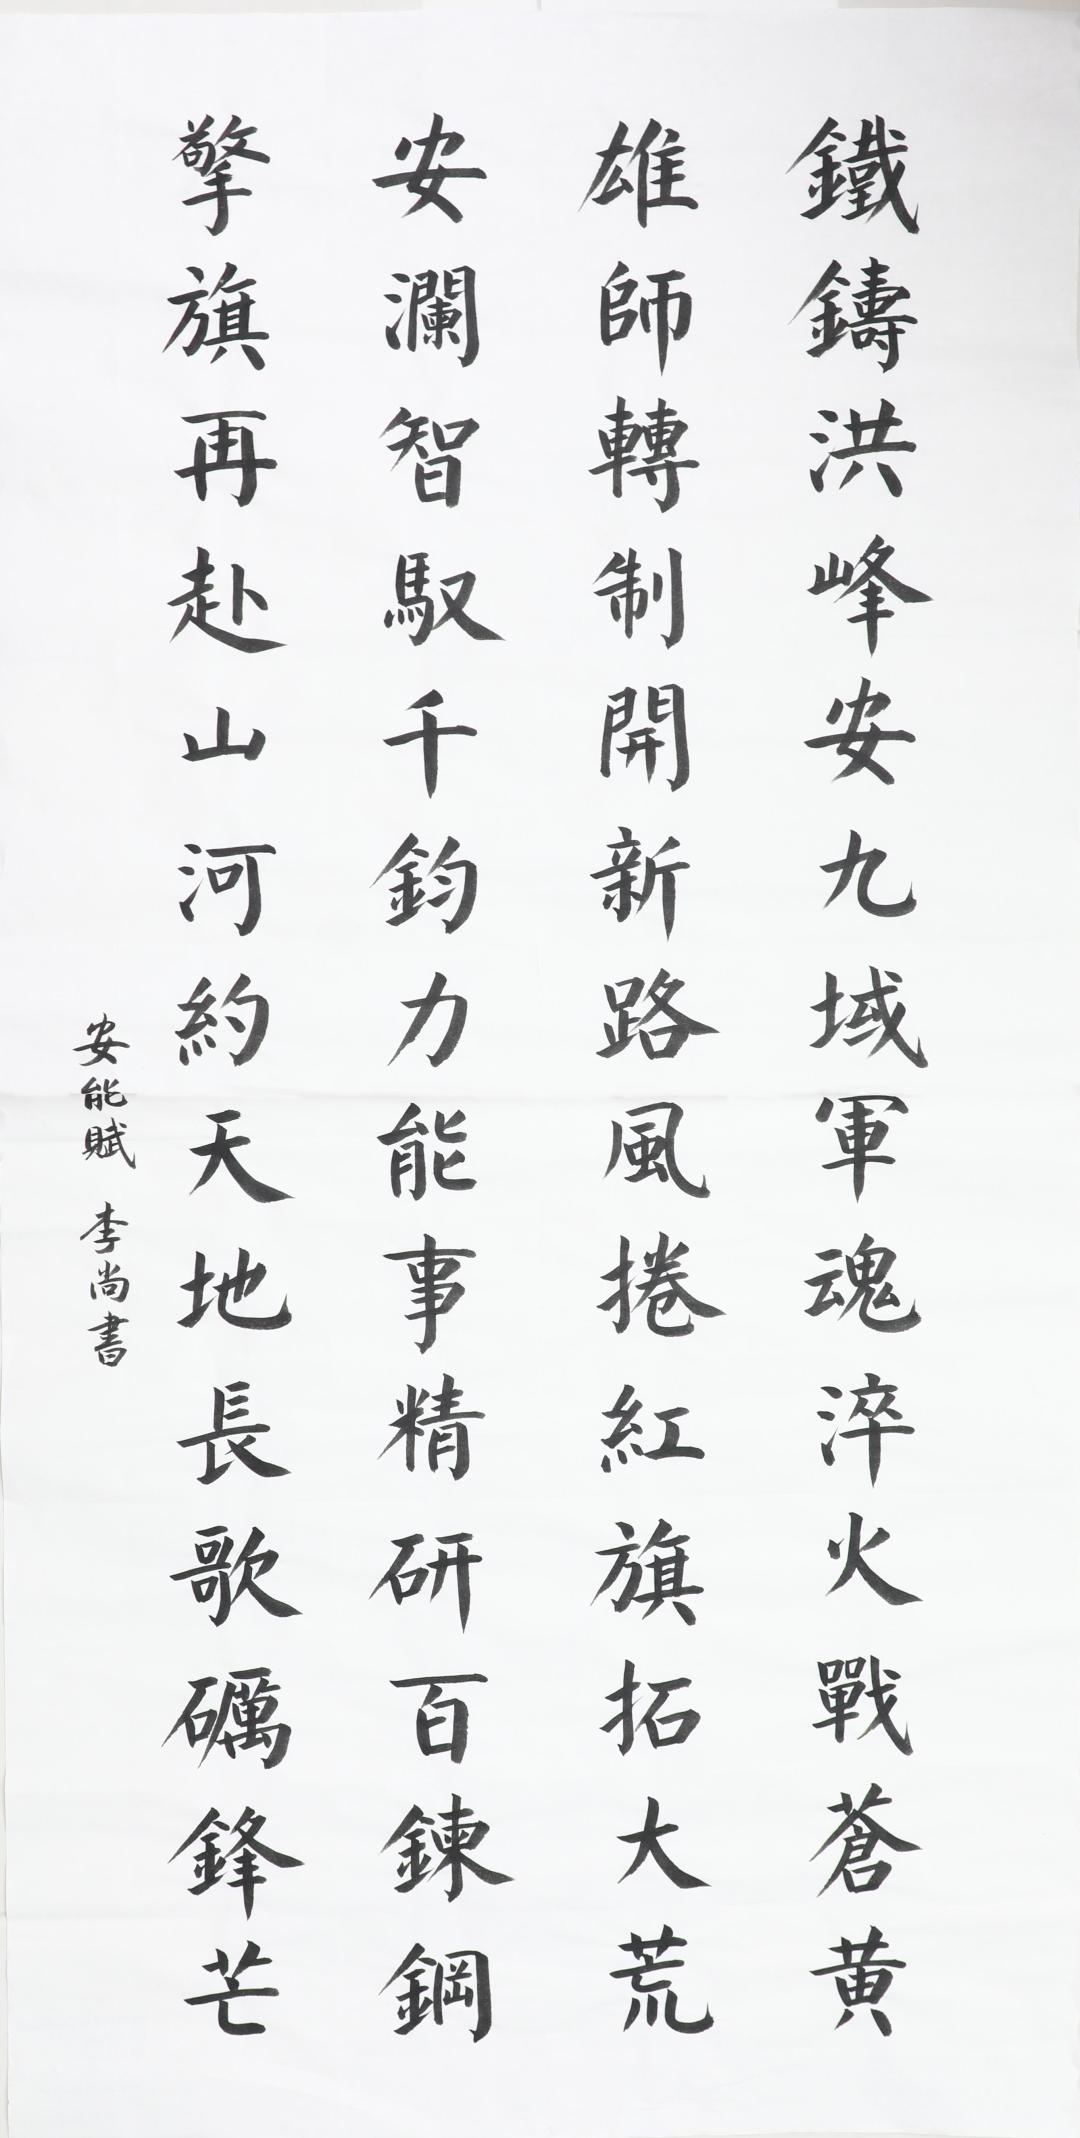 鐵鑄洪峰安九域軍魂淬火戰蒼黄
雄師轉制開新路風捲紅旗拓大荒
安瀾智馭千鈞力能事精研百鍊鋼
擎旗再赴山河約天地長歌礪鋒芒
安能賦 李尚書